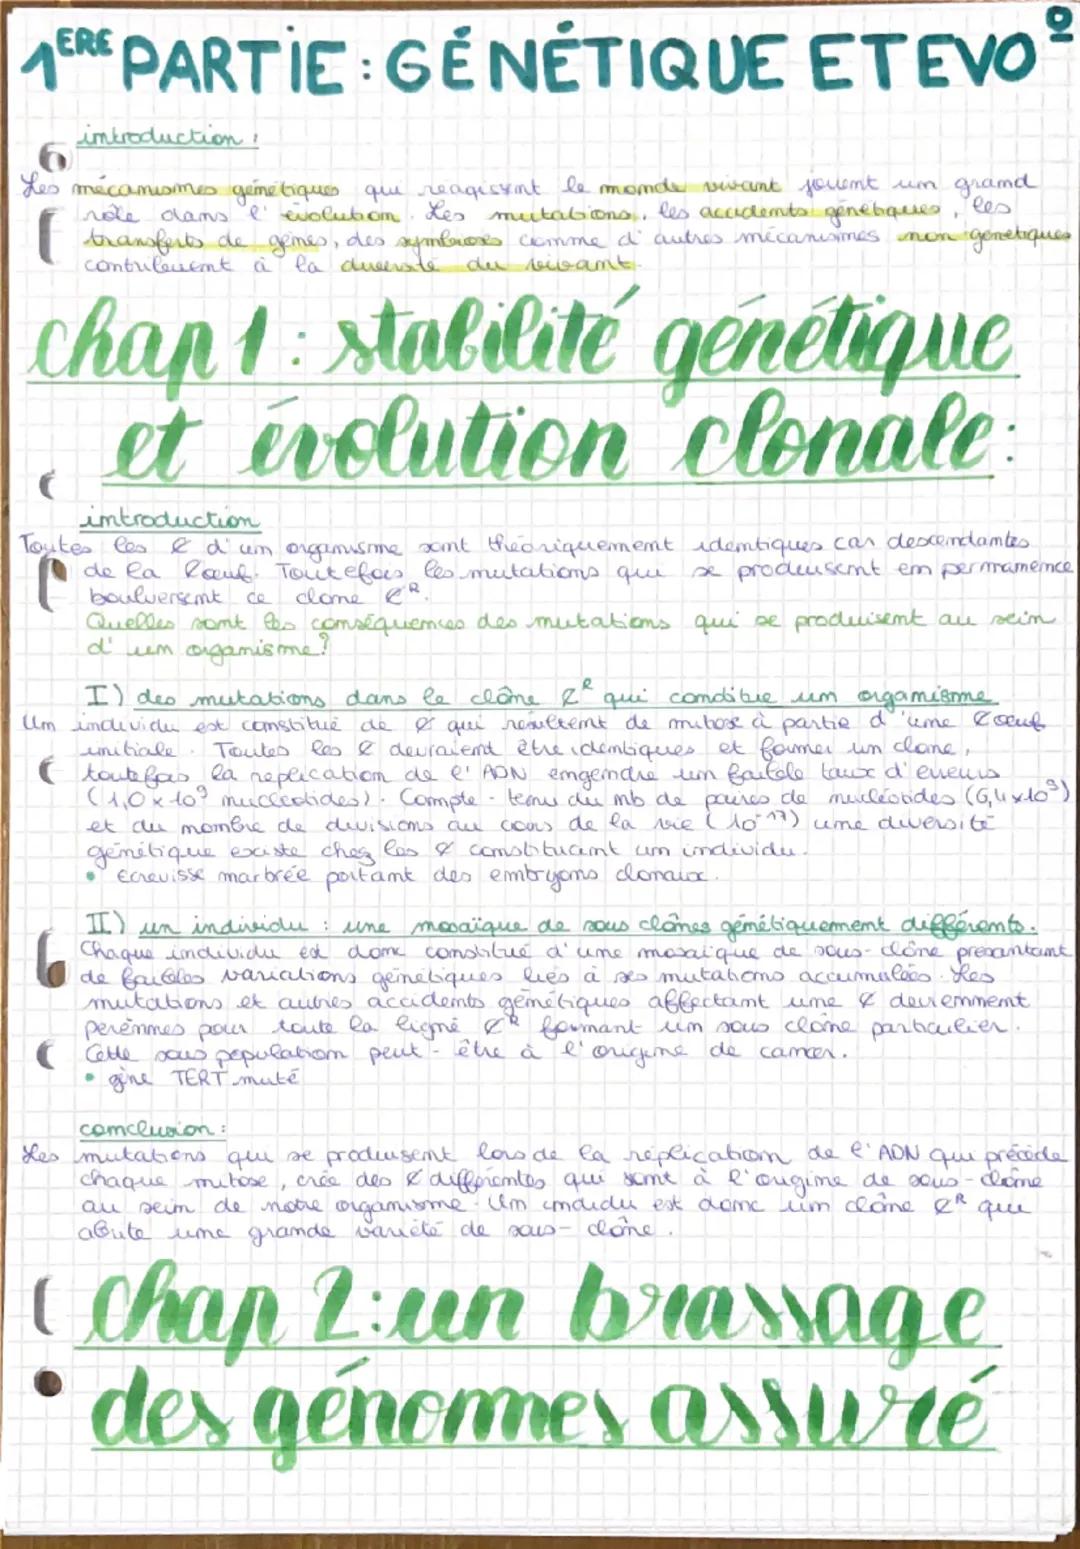 1ERE PARTIE : GÉNÉTIQUE ET EVO°
introduction :
Les mécanismes génétiques qui réagissent le monde vivant jouent un grand
rôle dans l'évolution. Les mutations, les accidents génétiques, les
transferts de gènes, des symbioses comme d'autres mécanismes non génétiques
contribuent à la diversité du vivant.
chap 1 : stabilité génétique
et évolution clonale :
introduction
Toutes les ¢ d'un organisme sont théoriquement identiques car descendantes
de la ¢œuf. Toutefois les mutations qui se produisent en permanence
boulversent ce clone ¢R.
Quelles sont les conséquences des mutations qui se produisent au sein
d'un organisme?
I) des mutations dans le clône ¢R qui conditue un organisme
Um individu est constitué de ¢ qui résultent de mitose à partie d'une ¢œuf
initiale. Toutes les ¢ devraient être identiques et former un clone,
toutefois la réplication de l'ADN engendre un faible taux d'erreurs
(1,0 x 10⁹ nucléotides). Compte-tenu du nb de paires de nucléotides (6,4x10⁹)
et du nombre de divisions au cours de la vie (10⁻¹⁷) une diversité
génétique existe chez les ¢ constituant un individu.
• Ecrevisse marbrée portant des embryons clonaux.
II) un individu : une mosaïque de sous clônes génétiquement différents.
Chaque individu est donc constitué d'une mosaïque de sous-clône présentant
de faibles variations génétiques liés à ses mutations accumulées. Les
mutations et autres accidents génétiques affectant une ¢ deviennent
pérennes pour toute la ligné ¢R formant un sous clône particulier.
Cette sous population peut-être à l'origine de cancer.
• gène TERT muté
conclusion :
Les mutations qui se produisent lors de la réplication de l'ADN qui précède
chaque mitose, crée des ¢ différentes qui sont à l'origine de sous-clône
au sein de notre organisme. Un individu est donc un clône ¢R qui
abrite une grande variété de sous-clône.
chap 2 : un brassage
des génomes assuré